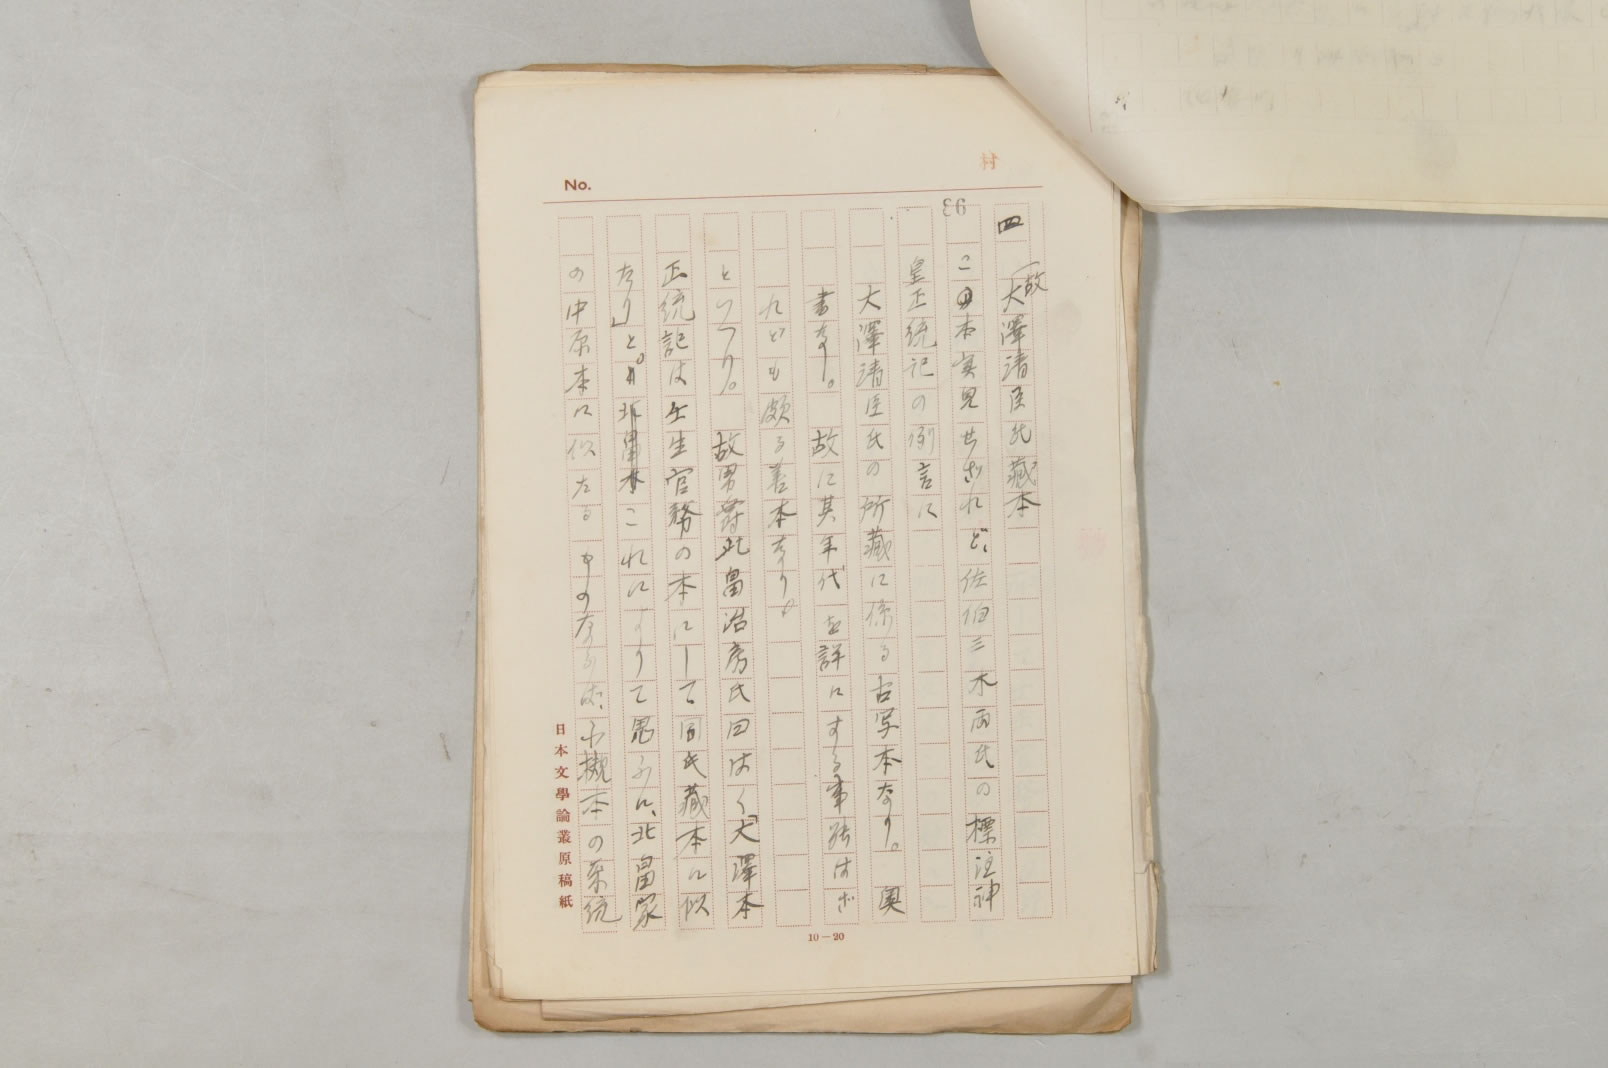 No.
村
93
四 故大澤清臣氏藏本
この本実見せざれど、佐伯三木両氏の標註神
皇正統記の例言に
大澤清臣氏の所藏に係る古写本なり。 奥
書なし。 故に其年代を詳にする事能はざ
れども頗る善本なり。
といへり。 故男爵北畠治房氏曰はく「大澤本
正統記は壬生官務の本にして同氏藏本に似
たり」と。 これによりて思ふに、北畠家
の中原本に似たるものならば、小槻本の系統
日本文學論叢原稿紙
10—20